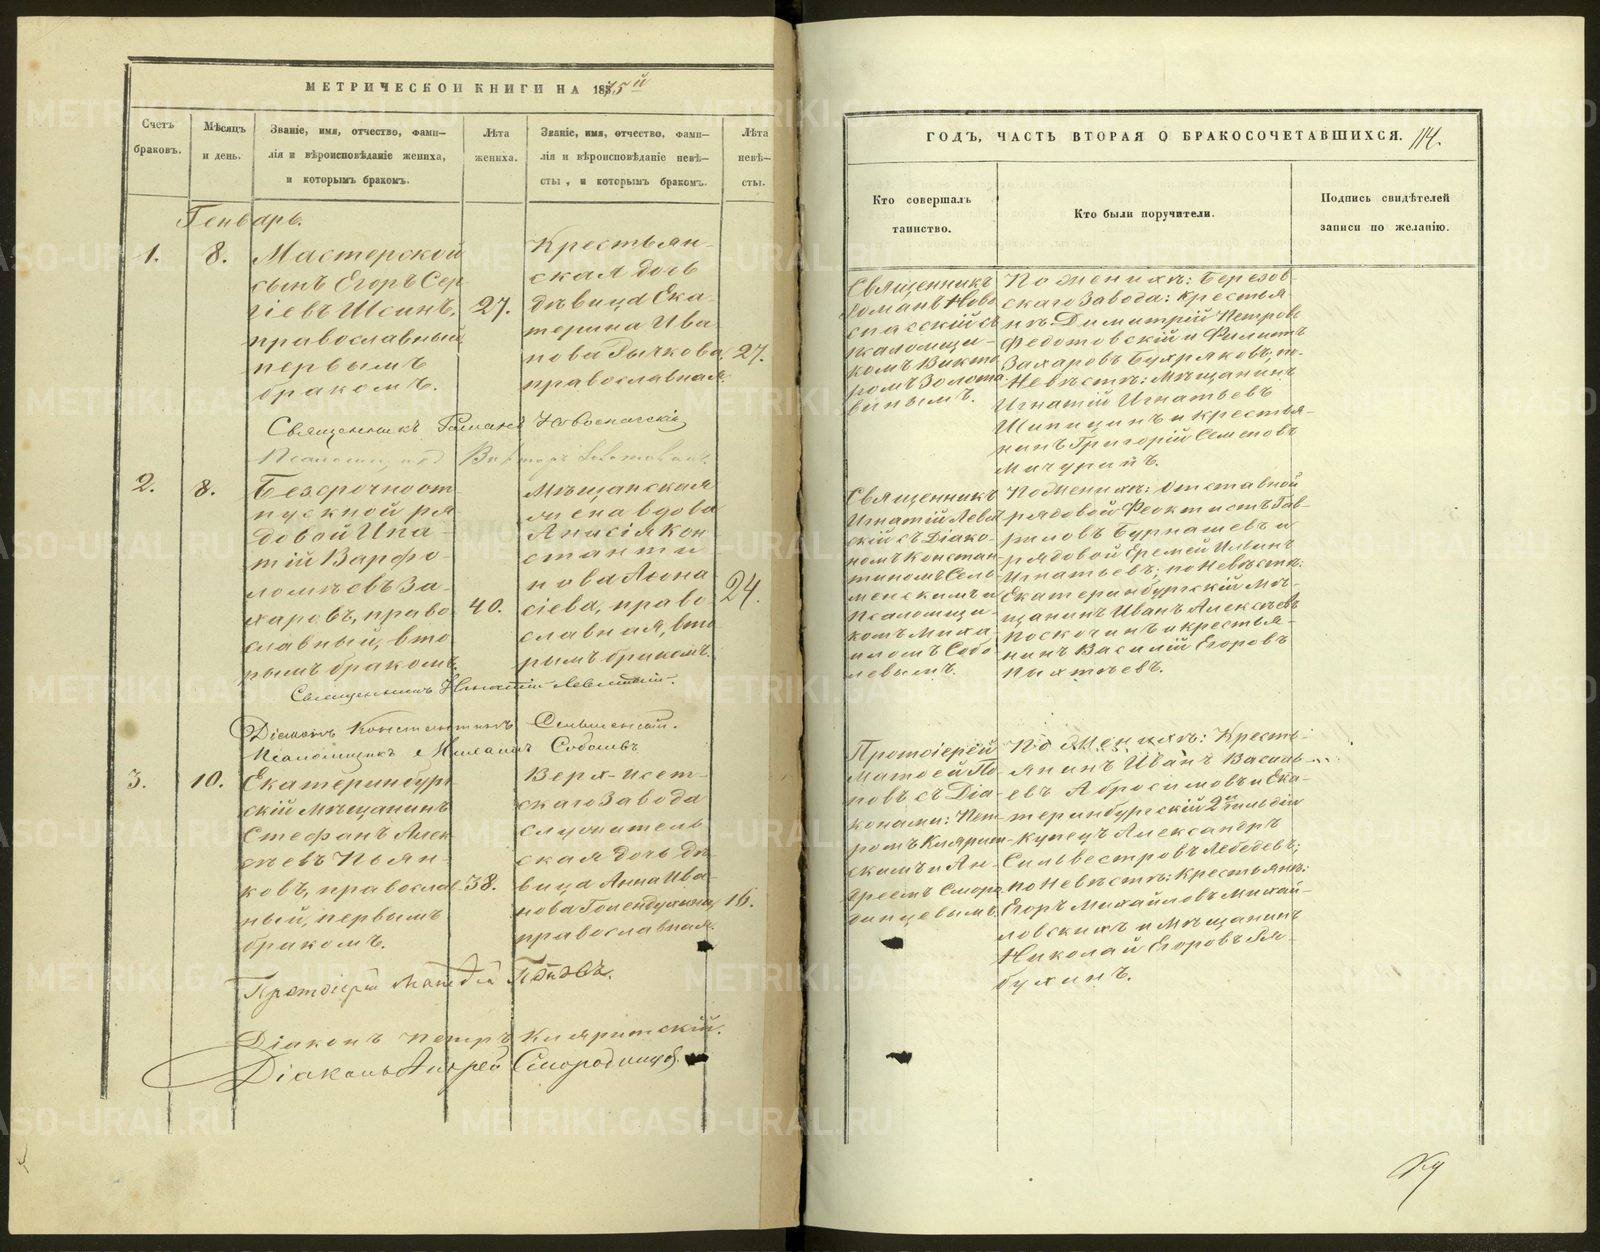 МЕТРИЧЕСКОЙ КНИГИ НА 1875й
Счетъ браковъ.
Мѣсяцъ и день.
Званіе, имя, отчество, фами-
лія и вѣроисповѣданіе жениха,
и которымъ бракомъ.
Лѣта жениха.
Званіе, имя, отчество, фами-
лія и вѣроисповѣданіе невѣ-
сты, и которымъ бракомъ.
Лѣта невѣ-
сты.
Генварь.
1. 8.
Мастерской
сынъ Егоръ Сер
гіевъ
православный
первымъ
бракомъ.
27.
Крестьян-
ская дочь
дѣвица Ека-
терина Ива
нова Рычкова,
православная.
27.
Священникъ Романъ Новоспасскій
Викторъ
2. 8.
Безсрочноот
пускной ря
довой Ипа-
тій Варфо-
ломѣевъ За-
харовъ, право
славный, вто
рымъ бракомъ.
40.
Мѣщанская
жена вдова
Анисія Кон
станти
нова
сіева, право-
славная, вто
рымъ бракомъ.
24.
Священникъ Игнатій Левитскій.
Діаконъ Константинъ Сельменскій.
Псаломщикъ Михаилъ Соболевъ
3. 10.
Екатеринбург
скій мѣщанинъ
Стефанъ Алек
сѣевъ Пьян-
ковъ, православ
ный, первымъ
бракомъ.
38.
Верх-Исет-
скаго завода
служитель
ская дочь дѣ-
вица Анна Ива-
нова Голендухина,
православная.
16.
Протоіерей Матѳій Поповъ.
Діаконъ Петръ Кляритскій.
Діаконъ Андрей Смородинцовъ.
ГОДЪ, ЧАСТЬ ВТОРАЯ О БРАКОСОЧЕТАВШИХСЯ. 114.
Кто совершалъ
таинство.
Кто были поручители.
Подпись свидѣтелей
записи по желанію.
Священникъ
Романъ Ново
спасскій съ
псаломщи-
комъ Викто
ромъ Золота
винымъ.
По женихѣ: Березов-
скаго завода: крестья
нъ Димитрій Петровъ
Федотовскій и Филиппъ
Захаровъ Бухряковъ, по
Невѣстѣ: мѣщанинъ
Игнатій Игнатьевъ
Шипицинъ и крестья-
нинъ Григорій Семеновъ
Мичуринъ.
Священникъ
Игнатій Левит
скій съ Діако-
номъ Констан
тиномъ Сель-
менскимъ и
Псаломщи-
комъ Миха-
иломъ Собо-
левымъ.
По женихѣ: Отставной
рядовой Феоктистъ Гав-
риловъ Бурнашевъ и
рядовой Еремей Ильинъ
Игнатьевъ; по Невѣстѣ:
Екатеринбургскій мѣ-
щанинъ Иванъ Алексѣевъ
Поскочинъ и крестья-
нинъ Василій Егоровъ
Пихтѣевъ.
Протоіерей
Матѳей По-
повъ съ Діа-
конами: Пет-
ромъ Кляритт-
скимъ и Ан-
дреемъ Сморо
динцевымъ.
По женихѣ: Кресть-
янинъ Иванъ Василь-
евъ Абросимовъ и Ека-
теринбургскій 2й гильдіи
купецъ Александръ
Сильвестровъ Лебедевъ;
по Невѣстѣ: крестьянъ:
Егоръ Михайловъ Михай-
ловскихъ и мѣщанинъ
Николай Егоровъ Ря-
бухинъ.